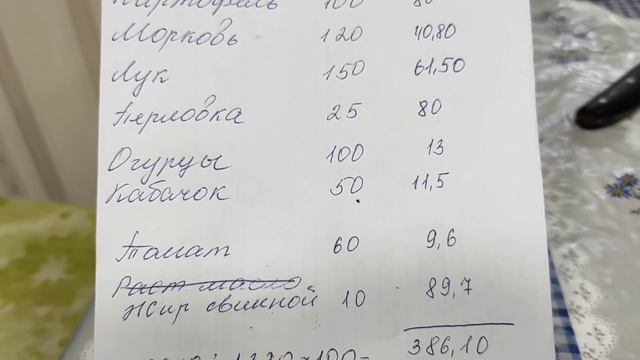 Картофель 100 80
Морковь 120 40,80
Лук 150 61,50
Перловка 25 80
Огурцы 100 13
Кабачок 50 11,5
Томат 60 9,6
Раст масло
Жир свиной 10 89,7
386,10